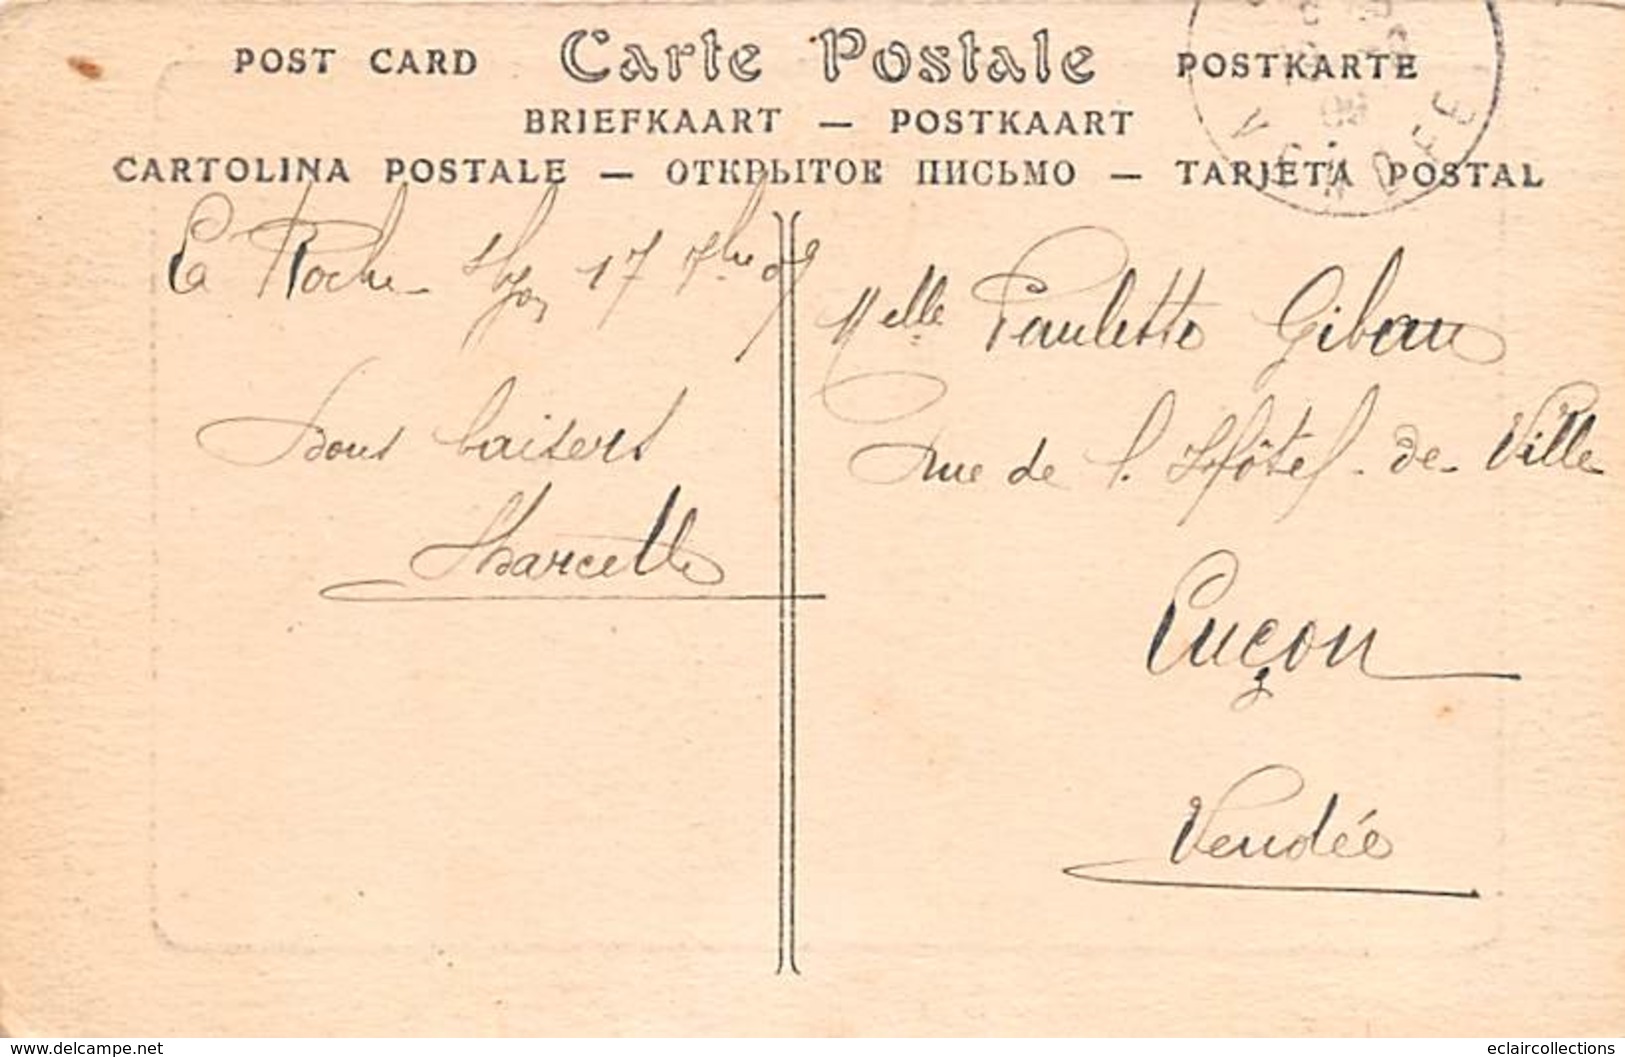 POST CARD Carte Postale POSTKARTE
BRIEFKAART — POSTKAART
CARTOLINA POSTALE — ОТКРЫТОЕ ПИСЬМО — TARJETA POSTAL
VENDEE
La Roche s/yon 17 7bre 09
Bons baisers
Marcelle
Melle Paulette
rue de l'Hôtel-de-Ville
Luçon
Vendée
www.delcampe.net
eclaircollections